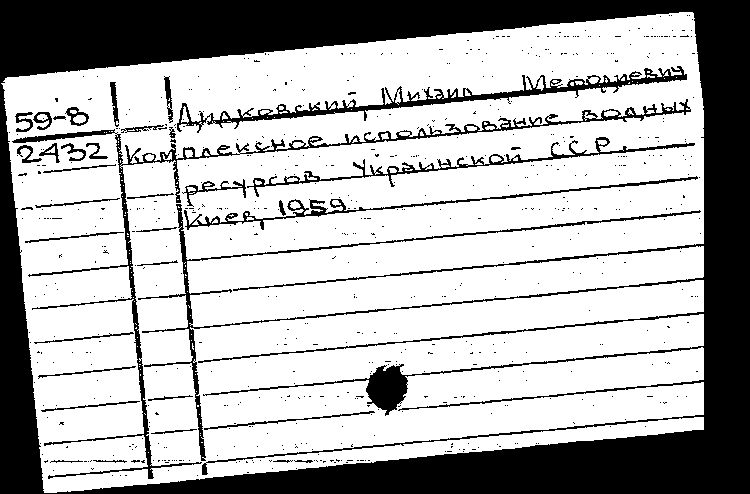 59-8 Дидковский, Михаил Мефодиевич
2432 Комплексное использование водных
ресурсов Украинской ССР.
Киев, 1959.